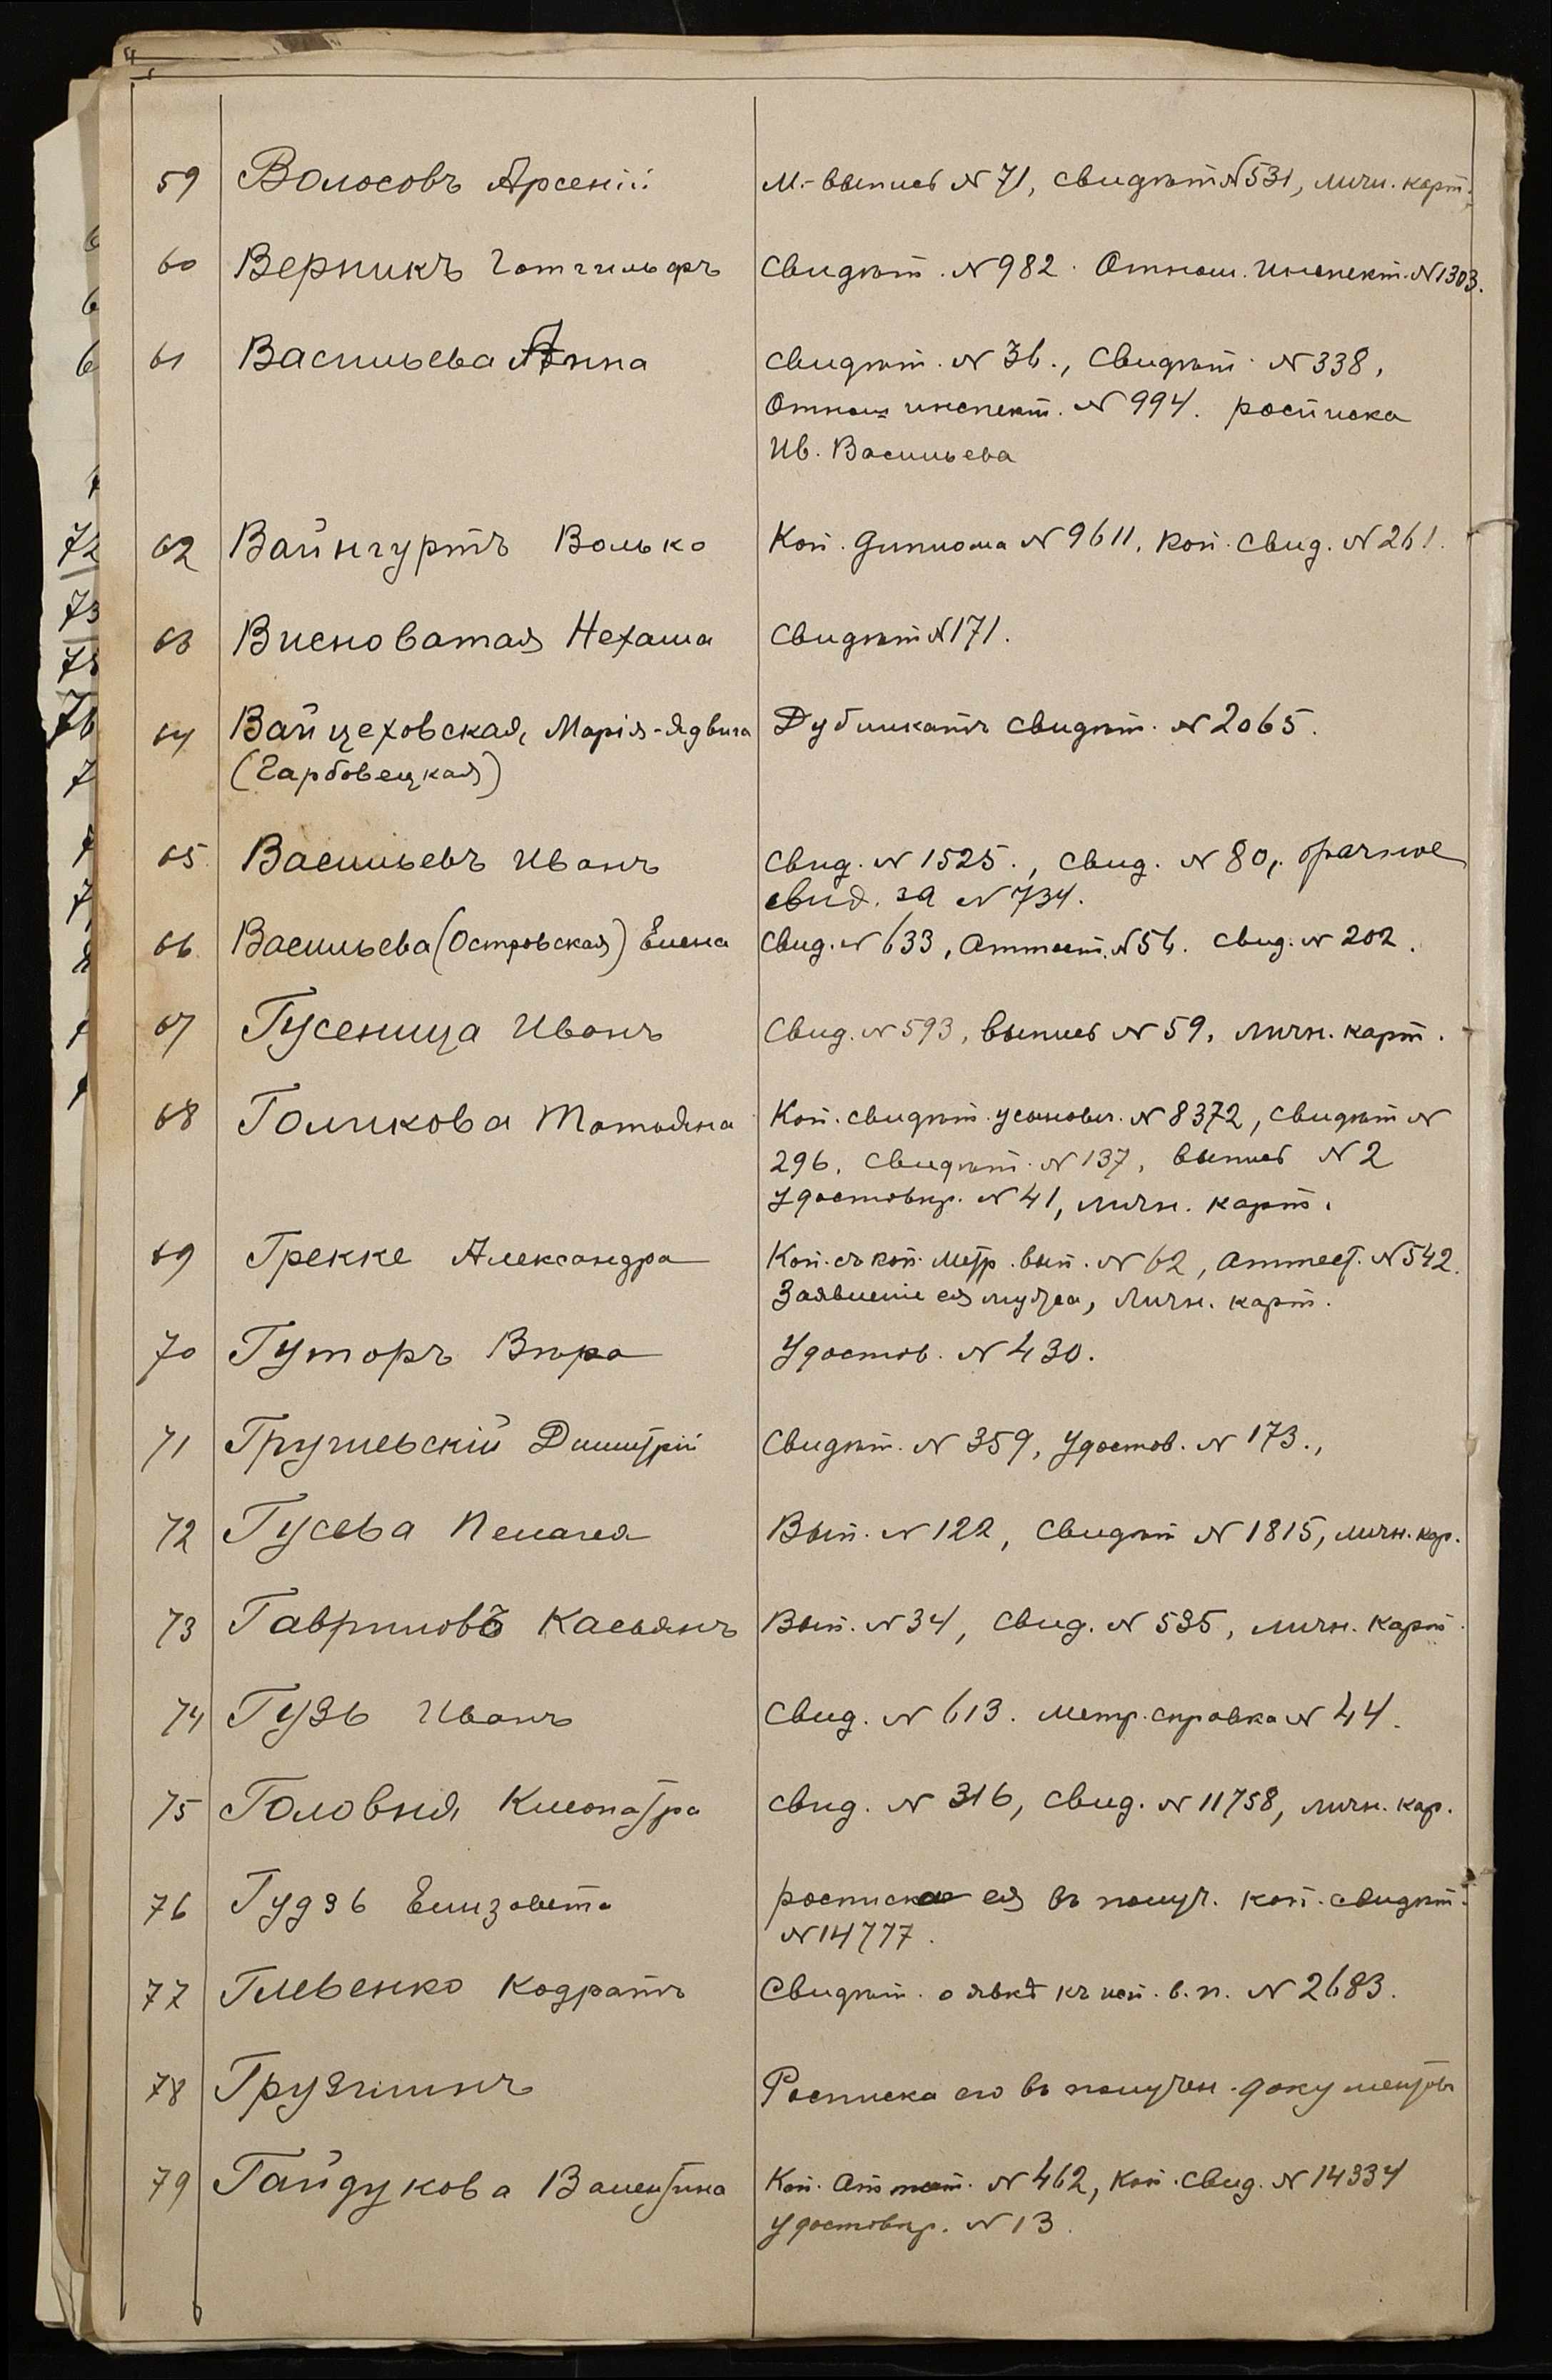 59 Волосовъ Арсеній М.-выпись № 71, свидѣт № 531, личн. карт.
60 Верникъ Готгильфъ Свидѣт. № 982. Отнош. инспект. № 1303.
61 Васильева Анна Свидѣт. № 36., Свидѣт. № 338,
Отнош инспект. № 994. росписка
Ив. Васильева
62 Вайнгуртъ Волько Коп. диплома № 9611, Коп. свид. № 261.
63 Висноватая Нехама Свидѣт № 171.
64 Вайцеховская, Марія-Ядвига Дубликатъ свидѣт. № 2065.
(Гарбовецкая)
65 Васильевъ Иванъ Свид. № 1525., Свид. № 80, брачное
свид. за № 734.
66. Васильева (Островская) Елена Свид. № 633, Аттест. № 56. Свид. № 202.
67 Гусеница Иванъ Свид. № 593, выпись № 59, личн. карт.
68 Голикова Татьяна Коп. свидѣт. усыновл. № 8372, свидѣт №
296, Свидѣт. № 137, выпись № 2
удостовѣр. № 41, личн. карт.
69 Грекке Александра Коп. съ коп. метр. вып. № 62, аттест. № 542.
Заявленіе ея мужа, личн. карт.
70 Гуторъ Вѣра Удостов. № 430.
71 Грушевскій Димитрій Свидѣт. № 359, удостов. № 173.,
72 Гусева Пелагея Вып. № 122, свидѣт № 1815, личн. кар.
73 Гавриловъ Касьянъ Вып. № 34, Свид. № 535, личн. карт.
74 Гузь Иванъ Свид. № 613. метр. справка № 44.
75 Головня Клеопатра Свид. № 316, свид. № 11758, личн. кар.
76 Гудзь Елизавета росписка ея въ получ. коп. свидѣт.
№ 14777.
77 Глевенко Кодратъ Свидѣт. о явкѣ къ исп. в. п. № 2683.
78 Грузининъ Росписка его въ получен. документовъ
79 Гайдукова Валентина Коп. аттест. № 462, Коп. свид. № 14334
удостовѣр. № 13.
72
73